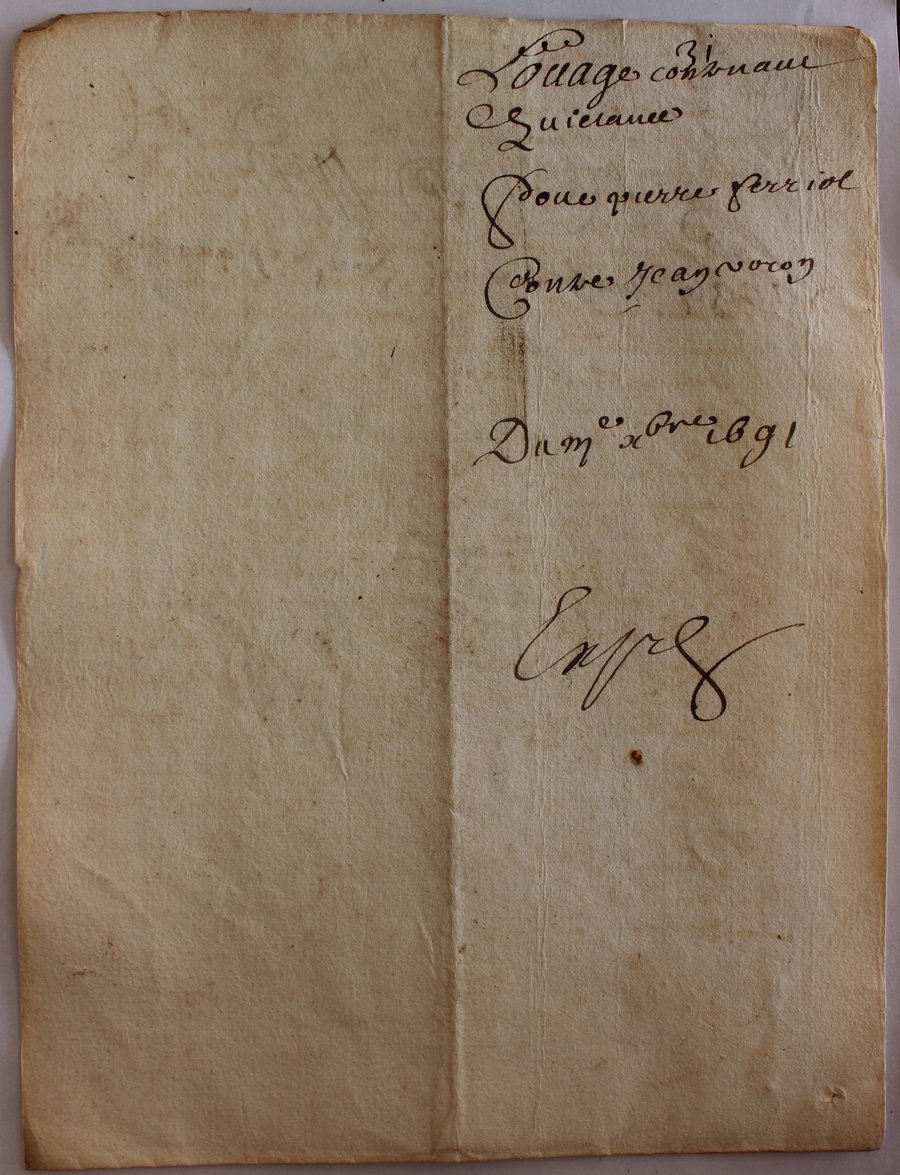 31
Louage contenant
Quictance
Pour pierre ferriol
Contre Jean voron
Du mᵉ xbre 1691